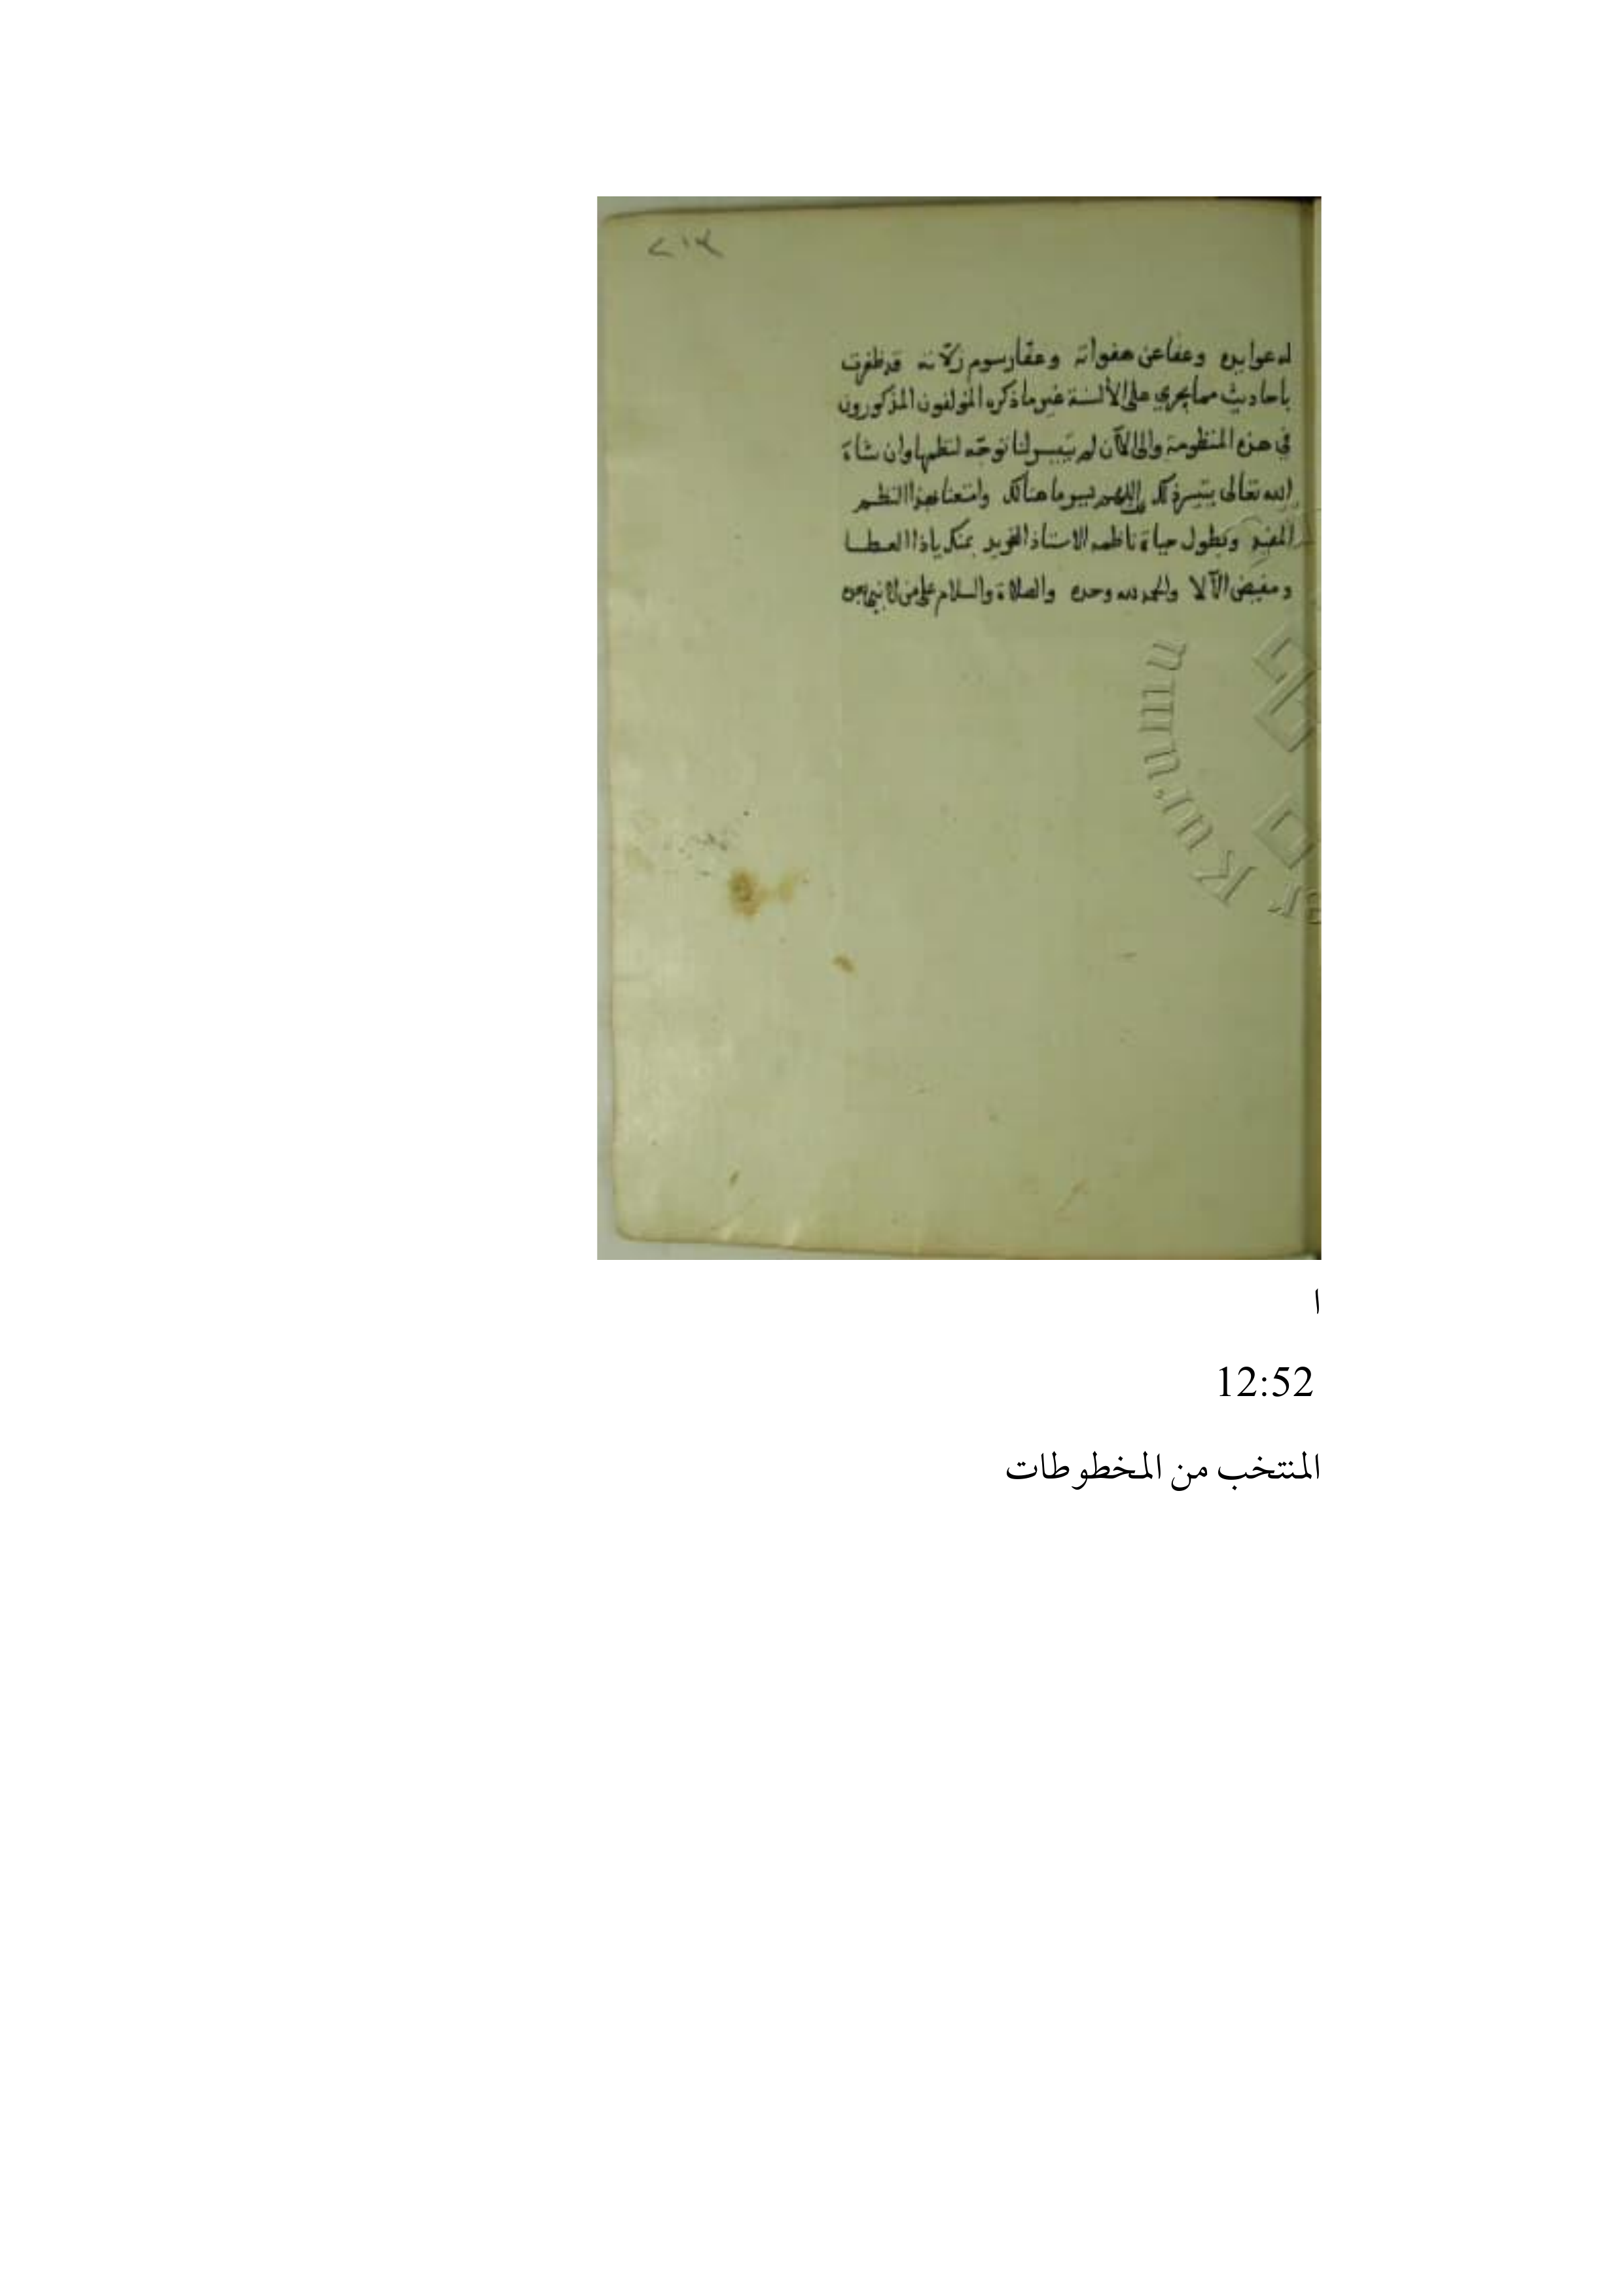 ٢١٣
له عوايده وعفا عن هفواته وعفا رسوم زلاته قد ظفرت
باحاديث مما يجري على الألسنة غير ما ذكره المؤلفون المذكورون
في هذه المنظومة والى الآن لم يتيسر لنا توجّه لنظمها وان شاء
الله تعالى يتيسر ذلك اللهم يسر ما هنالك وامتعنا بهذا النظم
المفيد وبطول حياة ناظمه الاستاذ الفريد بمنك ياذا العطا
ومفيض الآلا والحمد لله وحده والصلاة والسلام على من لا نبي بعده
ar Kurumu
ا
12:52
المنتخب من المخطوطات